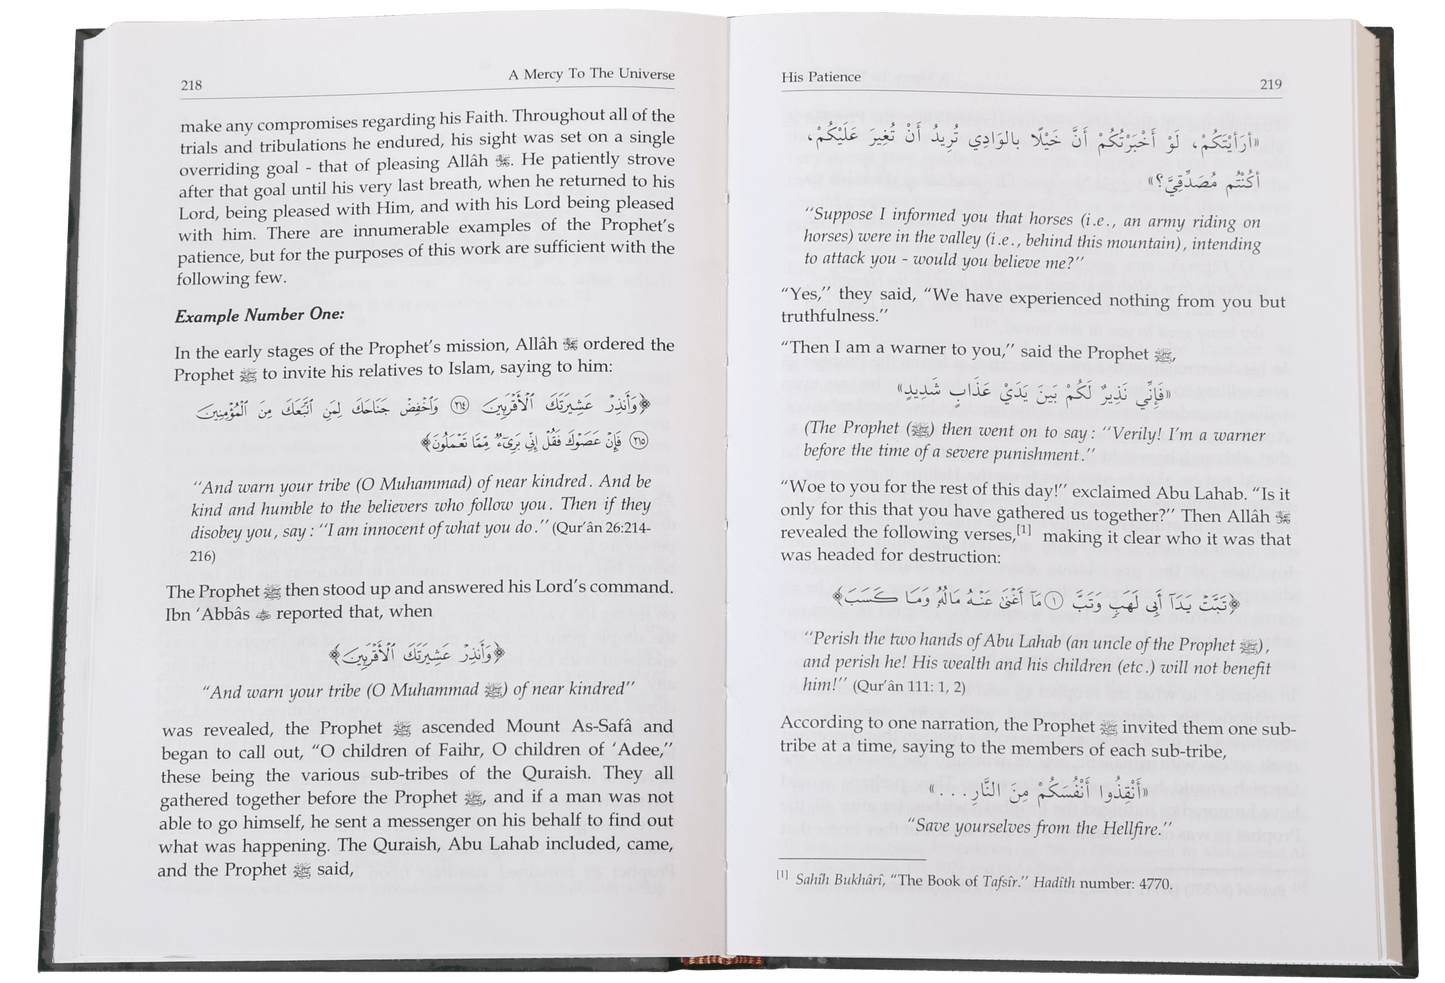 218
A Mercy To The Universe
make any compromises regarding his Faith. Throughout all of the
trials and tribulations he endured, his sight was set on a single
overriding goal - that of pleasing Allâh ﷻ. He patiently strove
after that goal until his very last breath, when he returned to his
Lord, being pleased with Him, and with his Lord being pleased
with him. There are innumerable examples of the Prophet's
patience, but for the purposes of this work are sufficient with the
following few.
Example Number One:
In the early stages of the Prophet's mission, Allâh ﷻ ordered the
Prophet ﷺ to invite his relatives to Islam, saying to him:
﴿وَأَنذِرْ عَشِيرَتَكَ ٱلْأَقْرَبِينَ ۝٢١٤ وَٱخْفِضْ جَنَاحَكَ لِمَنِ ٱتَّبَعَكَ مِنَ ٱلْمُؤْمِنِينَ
۝٢١٥ فَإِنْ عَصَوْكَ فَقُلْ إِنِّي بَرِيٓءٌ مِّمَّا تَعْمَلُونَ﴾
"And warn your tribe (O Muhammad) of near kindred. And be
kind and humble to the believers who follow you. Then if they
disobey you, say: "I am innocent of what you do." (Qur'ân 26:214-
216)
The Prophet ﷺ then stood up and answered his Lord's command.
Ibn 'Abbâs reported that, when
﴿وَأَنذِرْ عَشِيرَتَكَ ٱلْأَقْرَبِينَ﴾
"And warn your tribe (O Muhammad ﷺ) of near kindred"
was revealed, the Prophet ﷺ ascended Mount As-Safâ and
began to call out, "O children of Faihr, O children of 'Adee,"
these being the various sub-tribes of the Quraish. They all
gathered together before the Prophet ﷺ, and if a man was not
able to go himself, he sent a messenger on his behalf to find out
what was happening. The Quraish, Abu Lahab included, came,
and the Prophet ﷺ said,
His Patience
219
«أَرَأَيْتَكُمْ، لَوْ أَخْبَرْتُكُمْ أَنَّ خَيْلًا بِالوَادِي تُرِيدُ أَنْ تُغِيرَ عَلَيْكُمْ،
أَكُنْتُم مُصَدِّقِيَّ؟»
"Suppose I informed you that horses (i.e., an army riding on
horses) were in the valley (i.e., behind this mountain), intending
to attack you - would you believe me?"
"Yes," they said, "We have experienced nothing from you but
truthfulness."
"Then I am a warner to you," said the Prophet ﷺ,
«فَإِنِّي نَذِيرٌ لَكُمْ بَيْنَ يَدَيْ عَذَابٍ شَدِيدٍ»
(The Prophet (ﷺ) then went on to say: "Verily! I'm a warner
before the time of a severe punishment."
"Woe to you for the rest of this day!" exclaimed Abu Lahab. "Is it
only for this that you have gathered us together?" Then Allâh ﷻ
revealed the following verses,[1] making it clear who it was that
was headed for destruction:
﴿تَبَّتْ يَدَآ أَبِى لَهَبٍ وَتَبَّ ۝١ مَآ أَغْنَىٰ عَنْهُ مَالُهُۥ وَمَا كَسَبَ﴾
"Perish the two hands of Abu Lahab (an uncle of the Prophet ﷺ),
and perish he! His wealth and his children (etc.) will not benefit
him!" (Qur'ân 111: 1, 2)
According to one narration, the Prophet ﷺ invited them one sub-
tribe at a time, saying to the members of each sub-tribe,
«أَنْقِذُوا أَنْفُسَكُمْ مِنَ النَّارِ. . . .»
"Save yourselves from the Hellfire."
[1] Sahîh Bukhârî, "The Book of Tafsîr." Hadîth number: 4770.